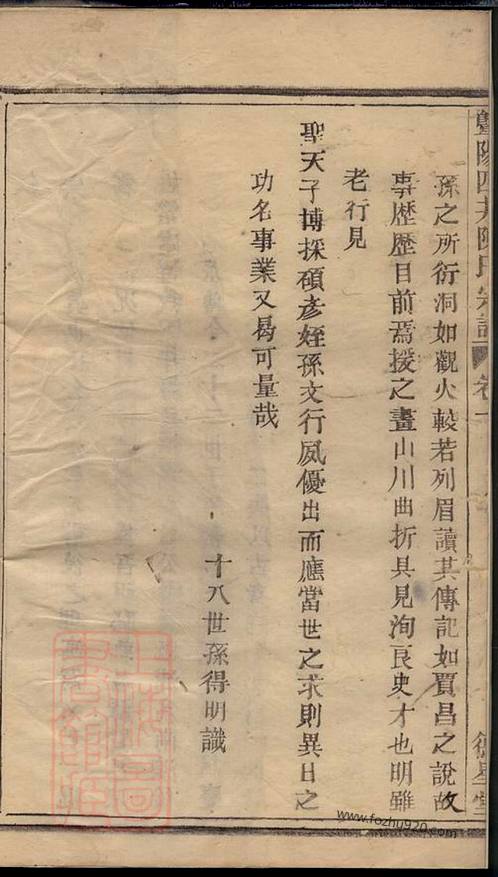 暨陽四井陳氏宗譜 卷一 德星堂
孫之所衍洞如觀火較若列眉讀其傳記如賈昌之說故
事歷歷目前焉援之畫山川曲折具見洵良史才也明雖
老行見
聖天子博採碩彥姪孫文行夙優出而應當世之求則異日之
功名事業又曷可量哉
十八世孫得明識
www.fozhu920.com